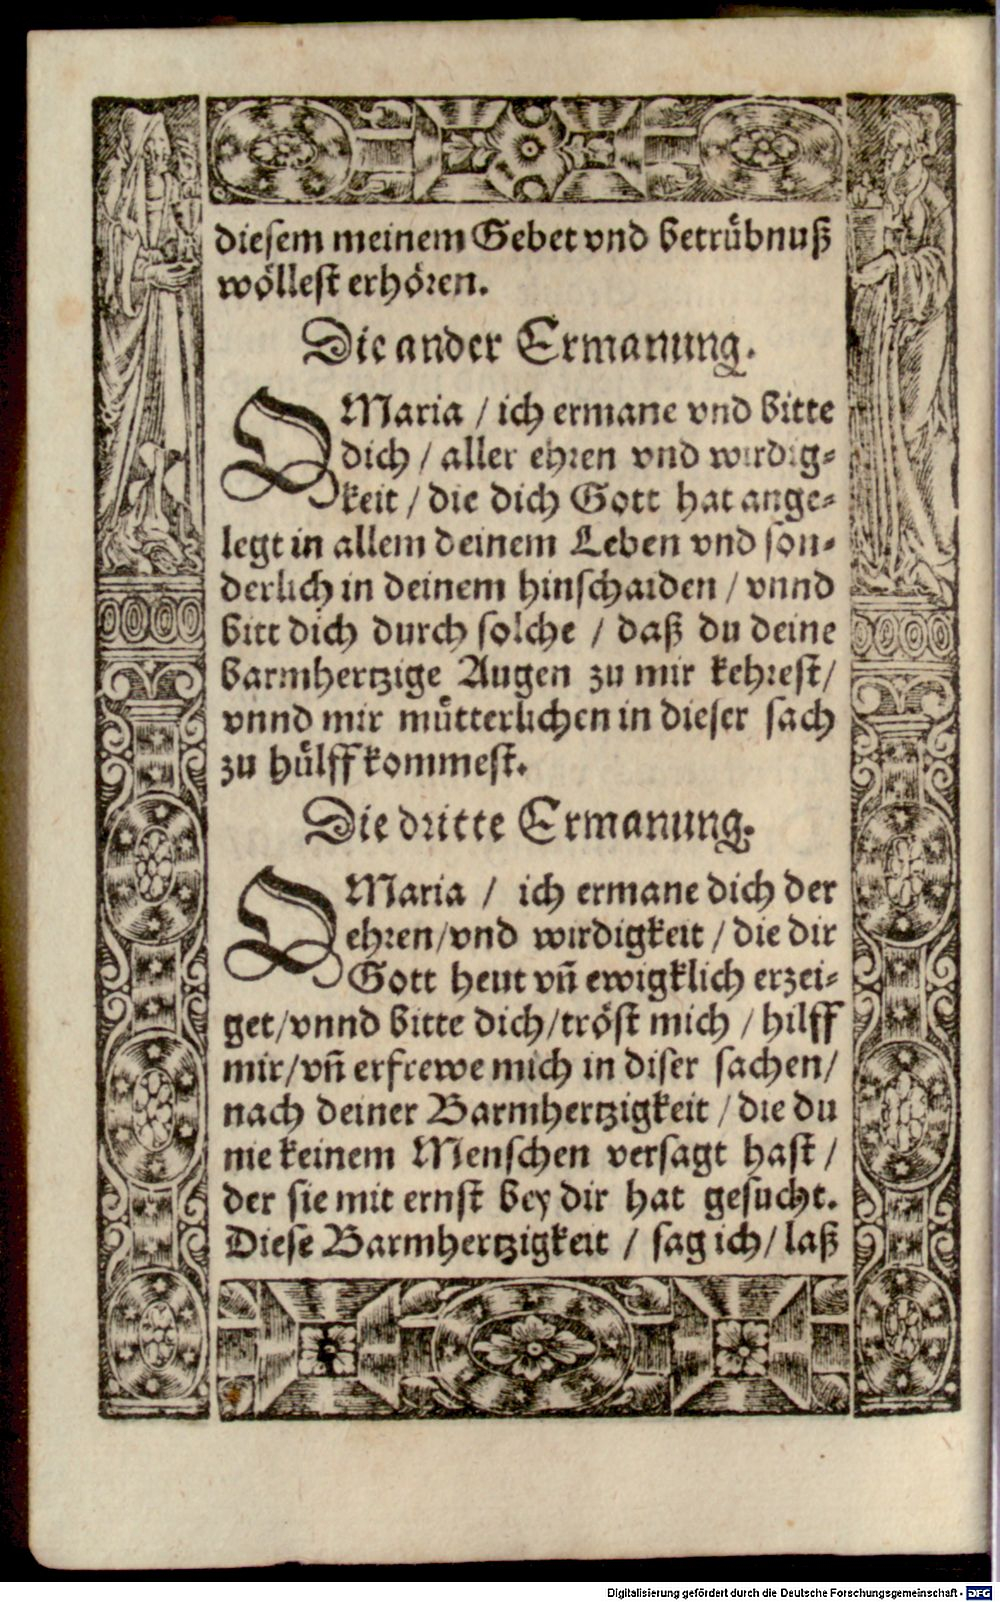 diesem meinem Gebet vnd betrübnuß
wöllest erhören.
Die ander Ermanung.
O Maria / ich ermane vnd bitte
dich / aller ehren vnd wirdig-
keit / die dich Gott hat ange-
legt in allem deinem Leben vnd son-
derlich in deinem hinschaiden / vnnd
bitt dich durch solche / daß du deine
barmhertzige Augen zu mir kehrest /
vnnd mir mütterlichen in dieser sach
zu hülff kommest.
Die dritte Ermanung.
O Maria / ich ermane dich der
ehren / vnd wirdigkeit / die dir
Gott heut vñ ewigklich erzei-
get / vnnd bitte dich / tröst mich / hilff
mir / vñ erfrewe mich in diser sachen /
nach deiner Barmhertzigkeit / die du
nie keinem Menschen versagt hast /
der sie mit ernst bey dir hat gesucht.
Diese Barmhertzigkeit / sag ich / laß
Digitalisierung gefördert durch die Deutsche Forschungsgemeinschaft - DFG